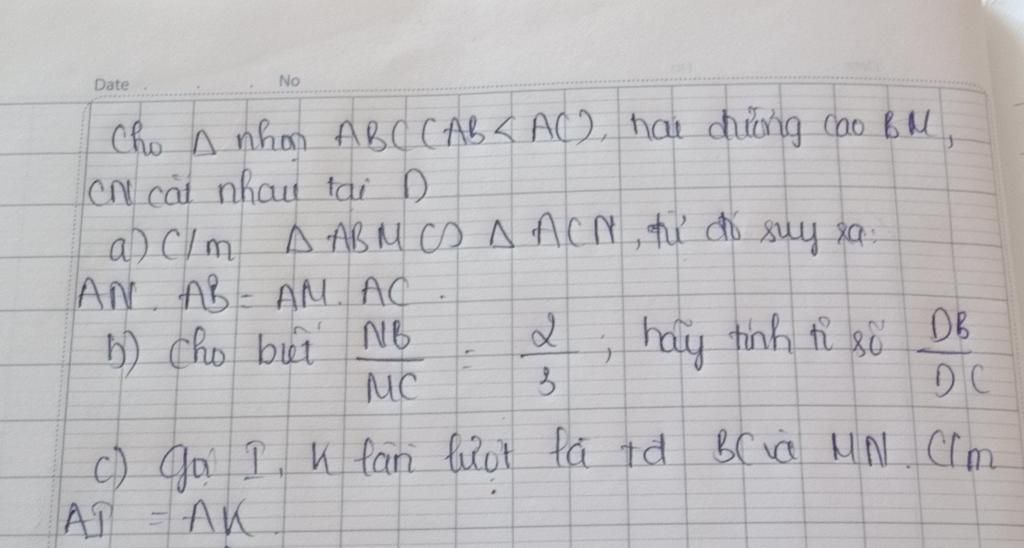 Date No
Cho Δ nhọn ABC (AB < AC), hai đường cao BM,
CN cắt nhau tại D
a) C/m Δ ABM ∽ Δ ACN, từ đó suy ra:
AN. AB = AM. AC.
b) Cho biết NB/MC = 2/3; hãy tính tỉ số DB/DC
c) Gọi I, K lần lượt là td BC và MN. C/m
AI = AK